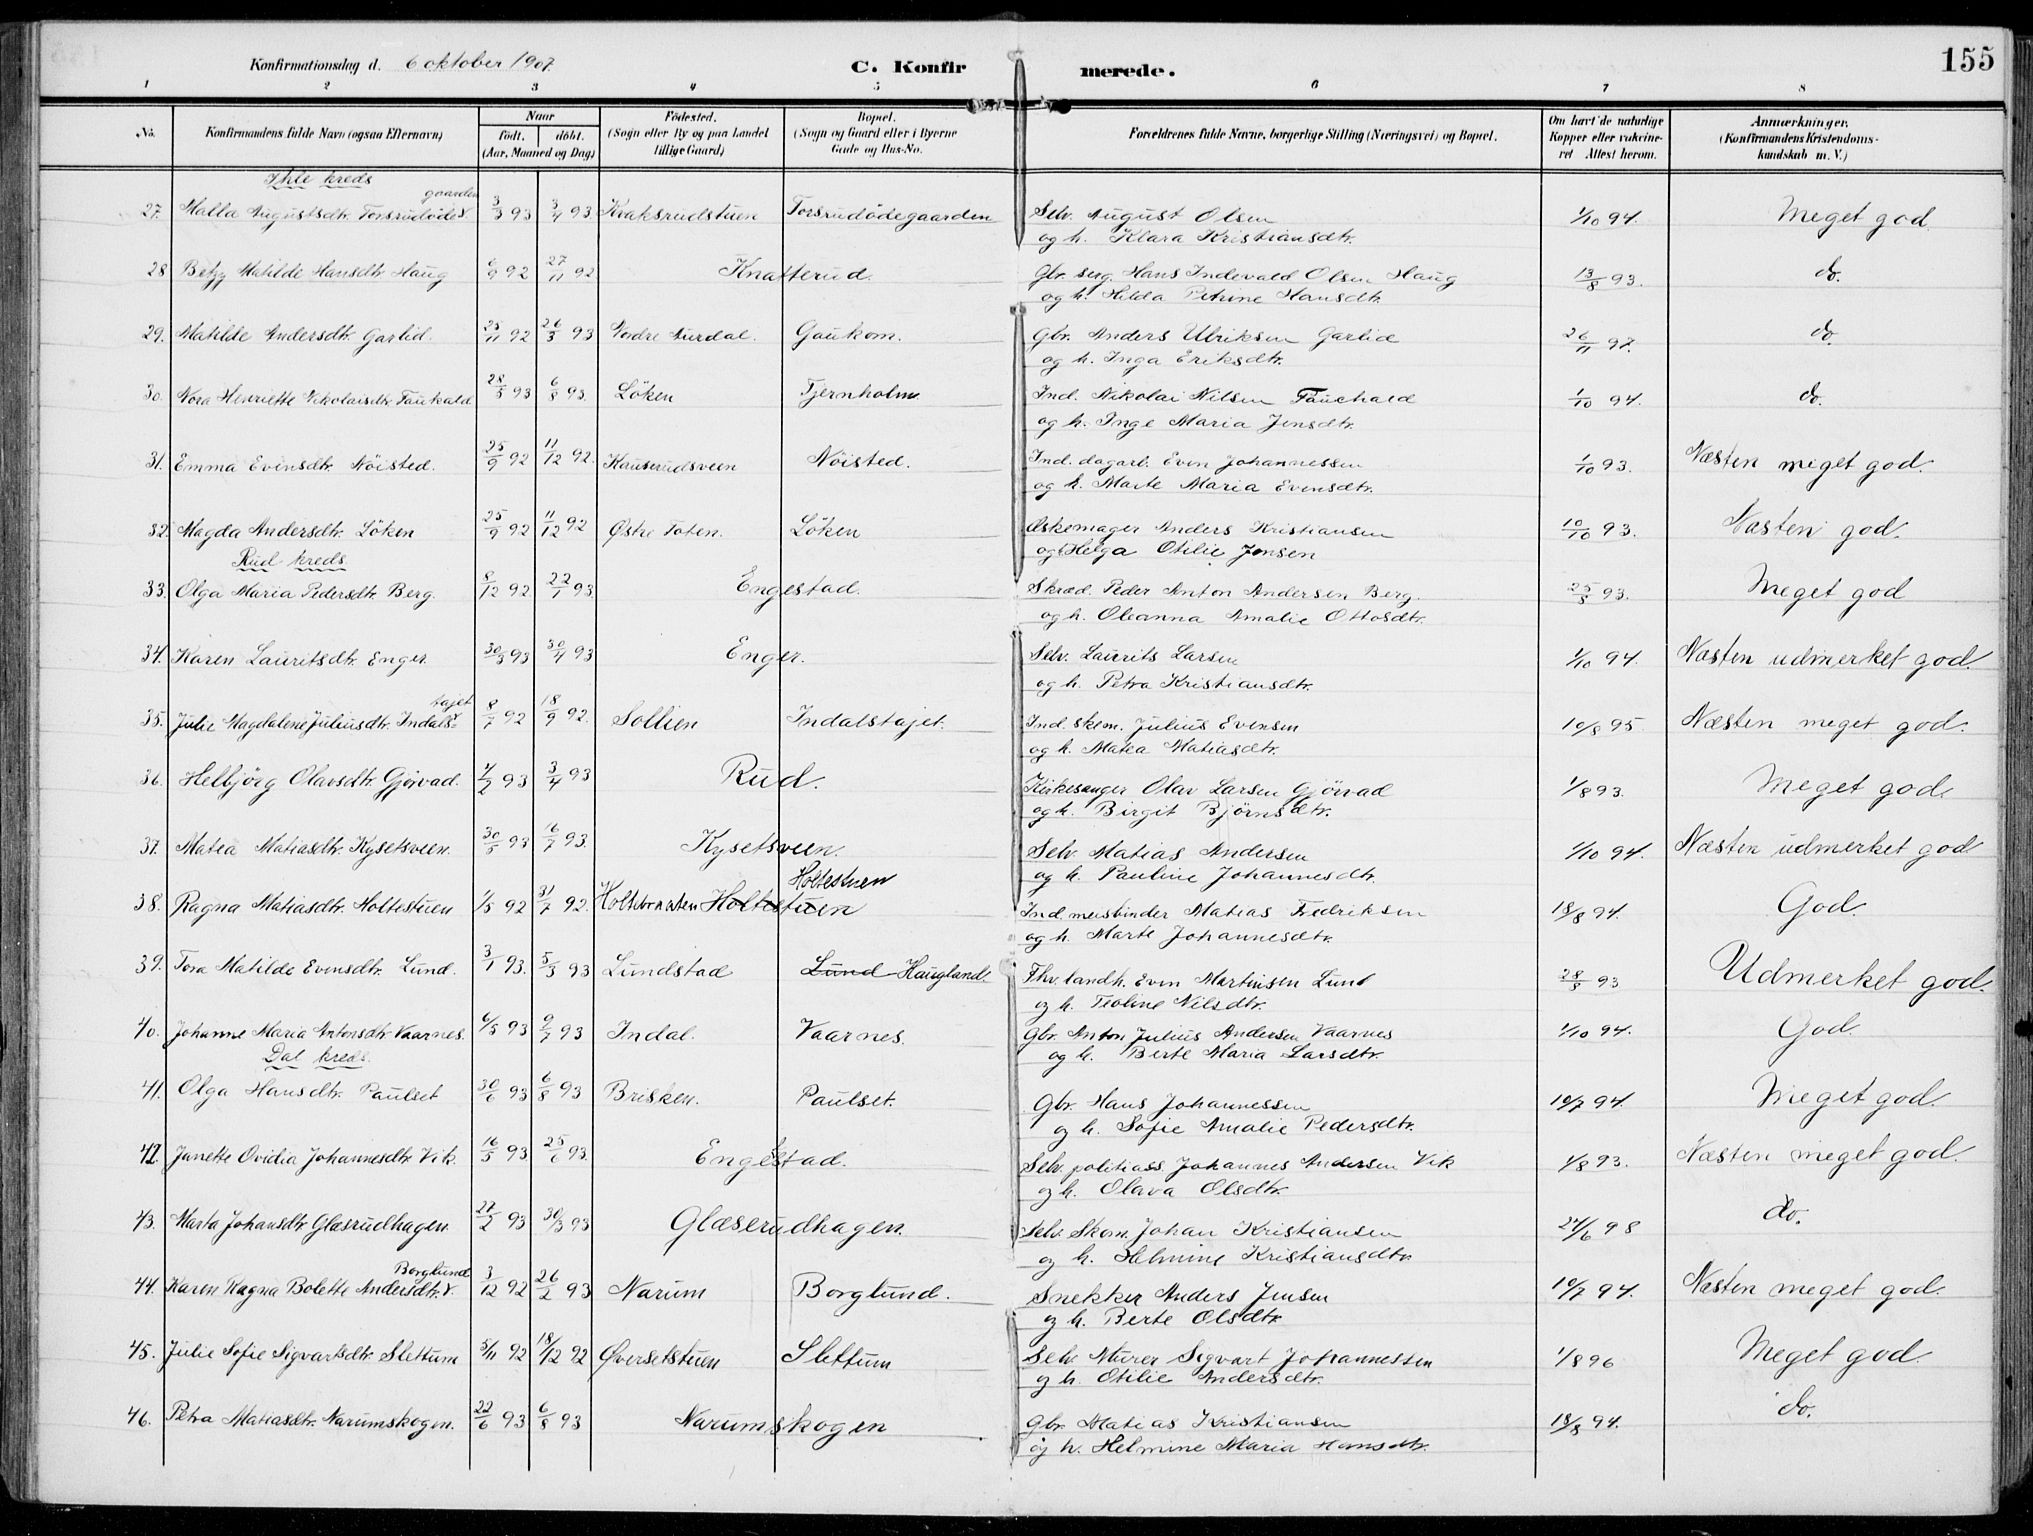 155
Konfirmationsdag d. 6 oktober 1907. C. Konfirmerede.
1 2 3 4 5 6 7 8
No. Konfirmandens fulde Navn (ogsaa Efternavn) Naar født. døbt. (Aar, Maaned og Dag) Födested. (Sogn eller By og paa Landet tillige Gaard) Bopæl. (Sogn og Gaard eller i Byerne Gade og Hus-No. Forældrenes fulde Navne, borgerlige Stilling (Næringsvei) og Bopæl. Om havt de naturlige Kopper eller vakcineret Attest herom. Anmærkninger. (Konfirmandens Kristendomskundskab m. V.)
Ihle kreds
gaarden
27. Halla Augustsdtr. Torsrudöde 3/3 93 3/4 93 Kvaksrudstuen Torsrudödegaarden Selv. August Olsen 1/10 94. Meget god
og h. Klara Kristiansdtr.
28 Betzy Matilde Hansdtr Haug 6/9 92 27/11 92 Knatterud. Gbr. serg. Hans Indevald Olsen Haug 13/8 93. do.
og h. Hilda Petrine Hansdtr.
29. Matilde Andersdtr. Garlid. 25/11 92 26/3 93 Nordre Aurdal. Gaukom. Gbr. Anders Ulriksen Garlid 26/11 97. do.
og h. Inga Eriksdtr.
30. Nora Henriette Nikolaisdtr Fauchald 28/5 93 6/8 93. Löken Tjernholm Ind. Nikolai Nilsen Fauchald 1/10 94. do.
og h. Inge Maria Jensdtr.
31. Emma Evensdtr. Nöisted. 25/9 92 11/12 92. Kauserudsveen Nöisted. Ind. dagarb. Even Johannessen 1/10 93. Næsten meget god.
og h. Marte Maria Evensdtr.
32. Magda Andersdtr. Löken 25/9 92 11/12 92 Østre Toten. Löken Æskemager Anders Kristiansen 10/10 93. Næsten god.
og Helga Otilie Jensen
Rud kreds.
33. Olga Maria Pedersdtr. Berg. 8/12 92 22/1 93 Engestad. Skræd. Peder Anton Andersen Berg. 25/8 93. Meget god
og h. Oleanna Amalie Ottosdtr.
34. Karen Lauritsdtr. Enger. 30/3 93 30/4 93 Enger. Selv. Laurits Larsen 1/10 94. Næsten udmerket god.
og h. Petra Kristiansdtr.
tajet
35. Julie Magdalene Juliusdtr. Indals- 8/7 92 18/9 92. Sollien Indalstajet. Ind skom. Julius Evensen 10/8 95 Næsten meget god.
og h. Matea Matiasdtr.
36. Helbjörg Olavsdtr. Gjörvad. 4/2 93 3/4 93 Rud. Kirkesanger Olav Larsen Gjörvad 1/8 93. Meget god.
og h. Birgit Bjørnsdtr.
37. Matea Matiasdtr. Kysetsveen. 30/5 93 16/7 93. Kysetsveen. Selv. Matias Andersen 1/10 94. Næsten udmerket god
og h. Pauline Johannesdtr.
Holtestuen
38. Ragna Matiasdtr. Holtestuen 1/5 92 31/7 92. Holtebraaten Holtestuen Ind. meisbinder Matias Fredriksen 18/8 94. God.
og h. Marte Johannesdtr.
39. Tora Matilde Evensdtr. Lund. 3/1 93. 5/3 93 Lundstad Lund Haugland. Fhv. landh. Even Martinsen Lund 28/8 93 Udmerket god.
og h. Teoline Nilsdtr.
40. Johanne Maria Antonsdtr Vaarnes. 6/5 93 9/7 93 Indal. Vaarnes. Gbr. Anton Julius Andersen Vaarnes 1/10 94. God.
og h. Berte Maria Larsdtr.
Dal kreds.
41. Olga Hansdtr. Paulset 30/6 93 6/8 93 Brisken. Paulset. Gbr. Hans Johannessen 10/7 94. Meget god.
og h. Sofie Amalie Pedersdtr.
42. Janette Ovidia Johannesdtr. Vik. 16/5 93 25/6 93. Engestad. Selv. politiass. Johannes Andersen Vik 1/8 93. Næsten meget god.
og h. Olava Olsdtr.
43. Marta Johansdtr. Glæserudhagen. 27/2 93 30/3 93 Glæserudhagen. Selv. Skom. Johan Kristiansen 24/6 98 do.
og h. Helmine Kristiansdtr.
Borglund
44. Karen Ragna Bolette Andersdtr. 3/12 92 26/2 93 Narum Borglund. Snekker Anders Jensen 10/7 94. Næsten meget god.
og h. Berte Olsdtr.
45. Julie Sofie Sigvartsdtr. Slettum 5/11 92 18/12 92 Øversetstuen Slettum Selv. Murer Segvart Johannessen 1/8 96 Meget god.
og h. Otilie Andersdtr.
46. Petra Matiasdtr. Narumskogen. 22/6 93 6/8 93 Narumskogen Gbr. Matias Kristiansen 18/8 94. do.
og h. Helmine Maria Hansdtr.